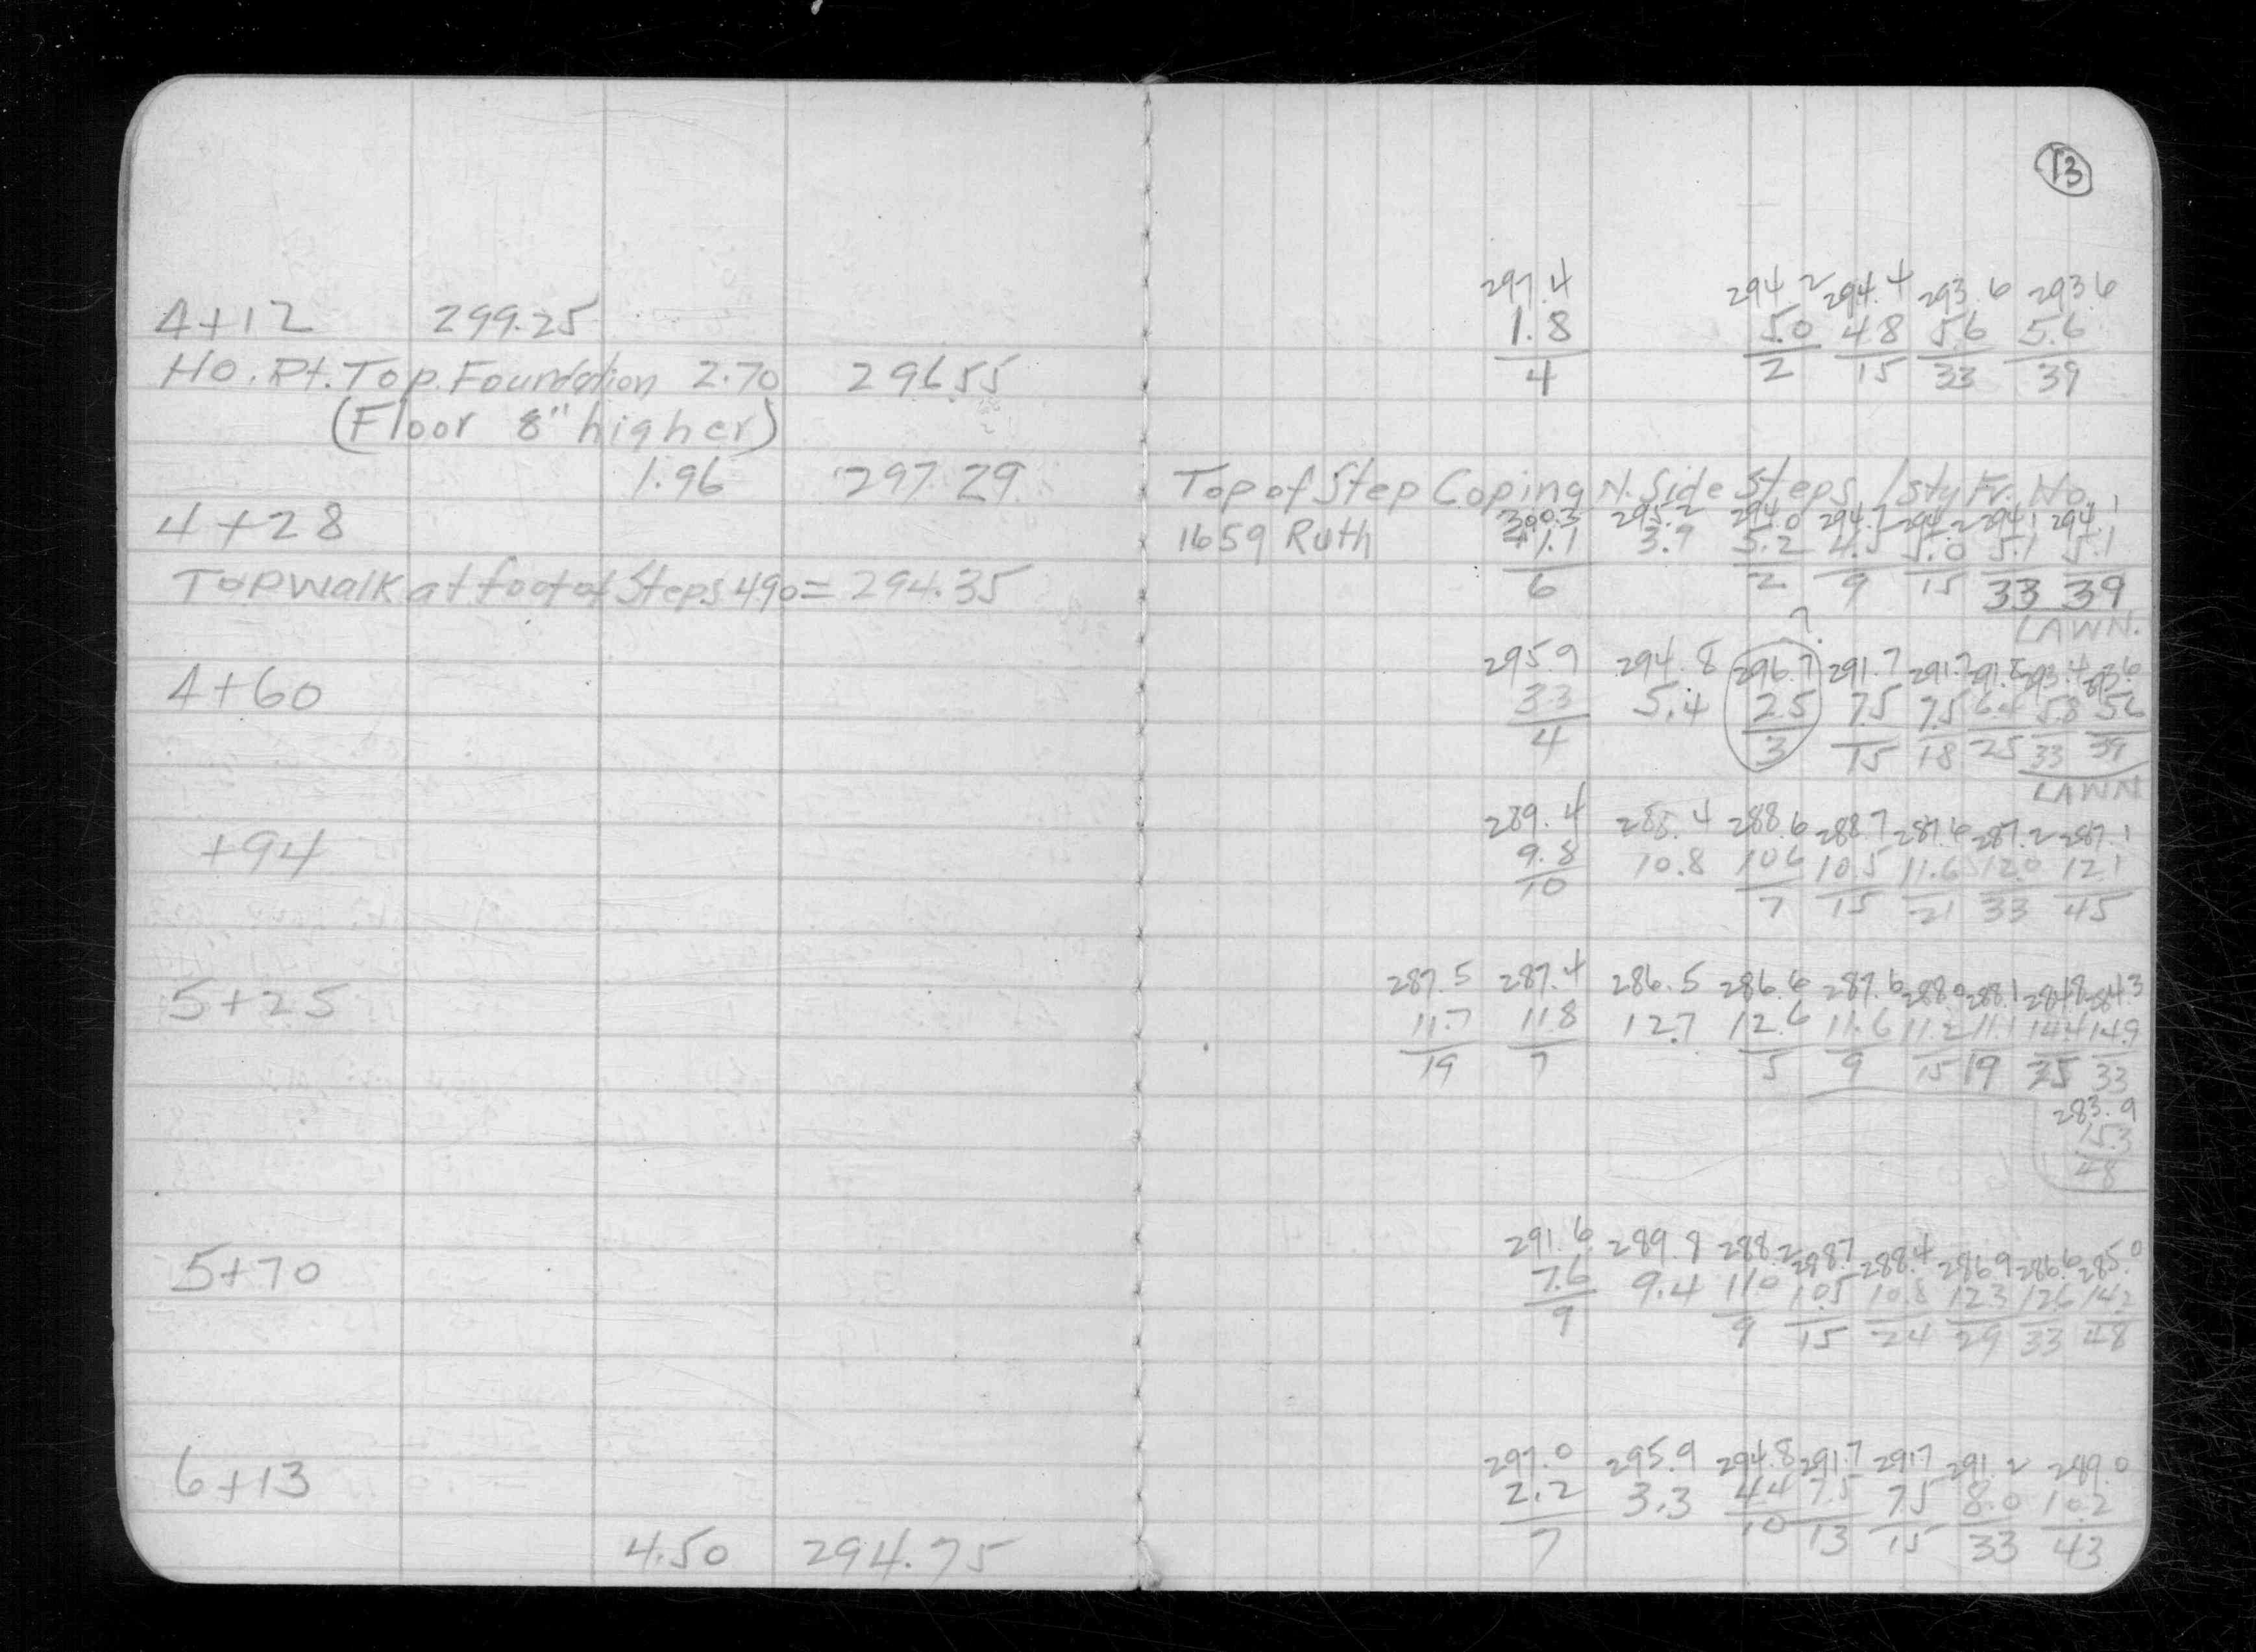 13
4+12 299.25
297.4 294.2 294.4 293.6 293.6
1.8 5.0 4.8 5.6 5.6
4 2 15 33 39
Ho. Pt. Top. Foundation 2.70 296.55
(Floor 8" higher)
1.96 297.29 Top of Step Coping N. Side Steps 1 sty Fr. Ho.
4+28
1659 Ruth 295.2 294.0 294.7 294.2 294.1 294.1
1.1 3.9 5.2 4.5 5.0 5.1 5.1
6 2 9 15 33 39
Top walk at foot of Steps 4.90 = 294.35
LAWN.
?
4+60
295.9 294.8 296.7 291.7 291.7 293.4 293.6
3.3 5.4 2.5 7.5 7.5 6.4 5.8 5.6
4 3 15 18 25 33 39
LAWN
+94
289.4 288.4 288.6 288.7 287.6 287.2 287.1
9.8 10.8 10.6 10.5 11.6 12.0 12.1
10 7 15 21 33 45
5+25
287.5 287.4 286.5 286.6 287.6 288.0 288.1 284.8 284.3
11.7 11.8 12.7 12.6 11.6 11.2 11.1 14.4 14.9
19 7 5 9 15 19 25 33
283.9
15.3
48
5+70
291.6 289.8 288.2 288.7 288.4 286.9 286.6 285.0
7.6 9.4 11.0 10.5 10.8 12.3 12.6 14.2
9 9 15 24 29 33 48
6+13
297.0 295.9 294.8 291.7 291.7 291.2 289.0
2.2 3.3 4.4 7.5 7.5 8.0 10.2
7 10 13 15 33 43
4.50 294.75